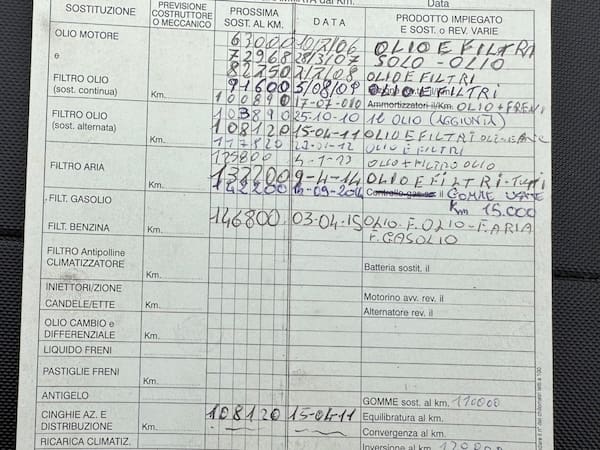 SOSTITUZIONE PREVISIONE COSTRUTTORE O MECCANICO PROSSIMA SOST. AL KM. DATA PRODOTTO IMPIEGATO E SOST. o REV. VARIE
Data
OLIO MOTORE 63000 OLIO E FILTRI
e 72968 28/3/07 SOLO - OLIO
FILTRO OLIO 82250 OLIO E FILTRI
(sost. continua) Km. 91600 5/08/09 OLIO E FILTRI
100890 17-07-010 Ammortizzatori il/Km. OLIO + FRENI
FILTRO OLIO 103890 25-10-10 1l OLIO (AGGIUNTA)
(sost. alternata) Km. 108120 15-04-11 OLIO E FILTRI
117820 OLIO E FILTRI
FILTRO ARIA 125800 OLIO + FILTRO OLIO
Km. 132200 9-4-14 OLIO E FILTRI - TUTTI
142200 -09-2014 GOMME USATE
FILT. GASOLIO Km 15.000
FILT. BENZINA Km. 146800 03-04-15 OLIO-F.OLIO-F.ARIA
F. GASOLIO
FILTRO Antipolline
CLIMATIZZATORE Km. Batteria sostit. il
INIETTORI/ZIONE Motorino avv. rev. il
CANDELE/ETTE Km. Alternatore rev. il
OLIO CAMBIO e
DIFFERENZIALE Km.
LIQUIDO FRENI
PASTIGLIE FRENI Km.
ANTIGELO GOMME sost. al km. 110000
CINGHIE AZ. E DISTRIBUZIONE Km. 108120 15-04-11 Equilibratura al km.
Convergenza al km.
RICARICA CLIMATIZ. Inversione al km.